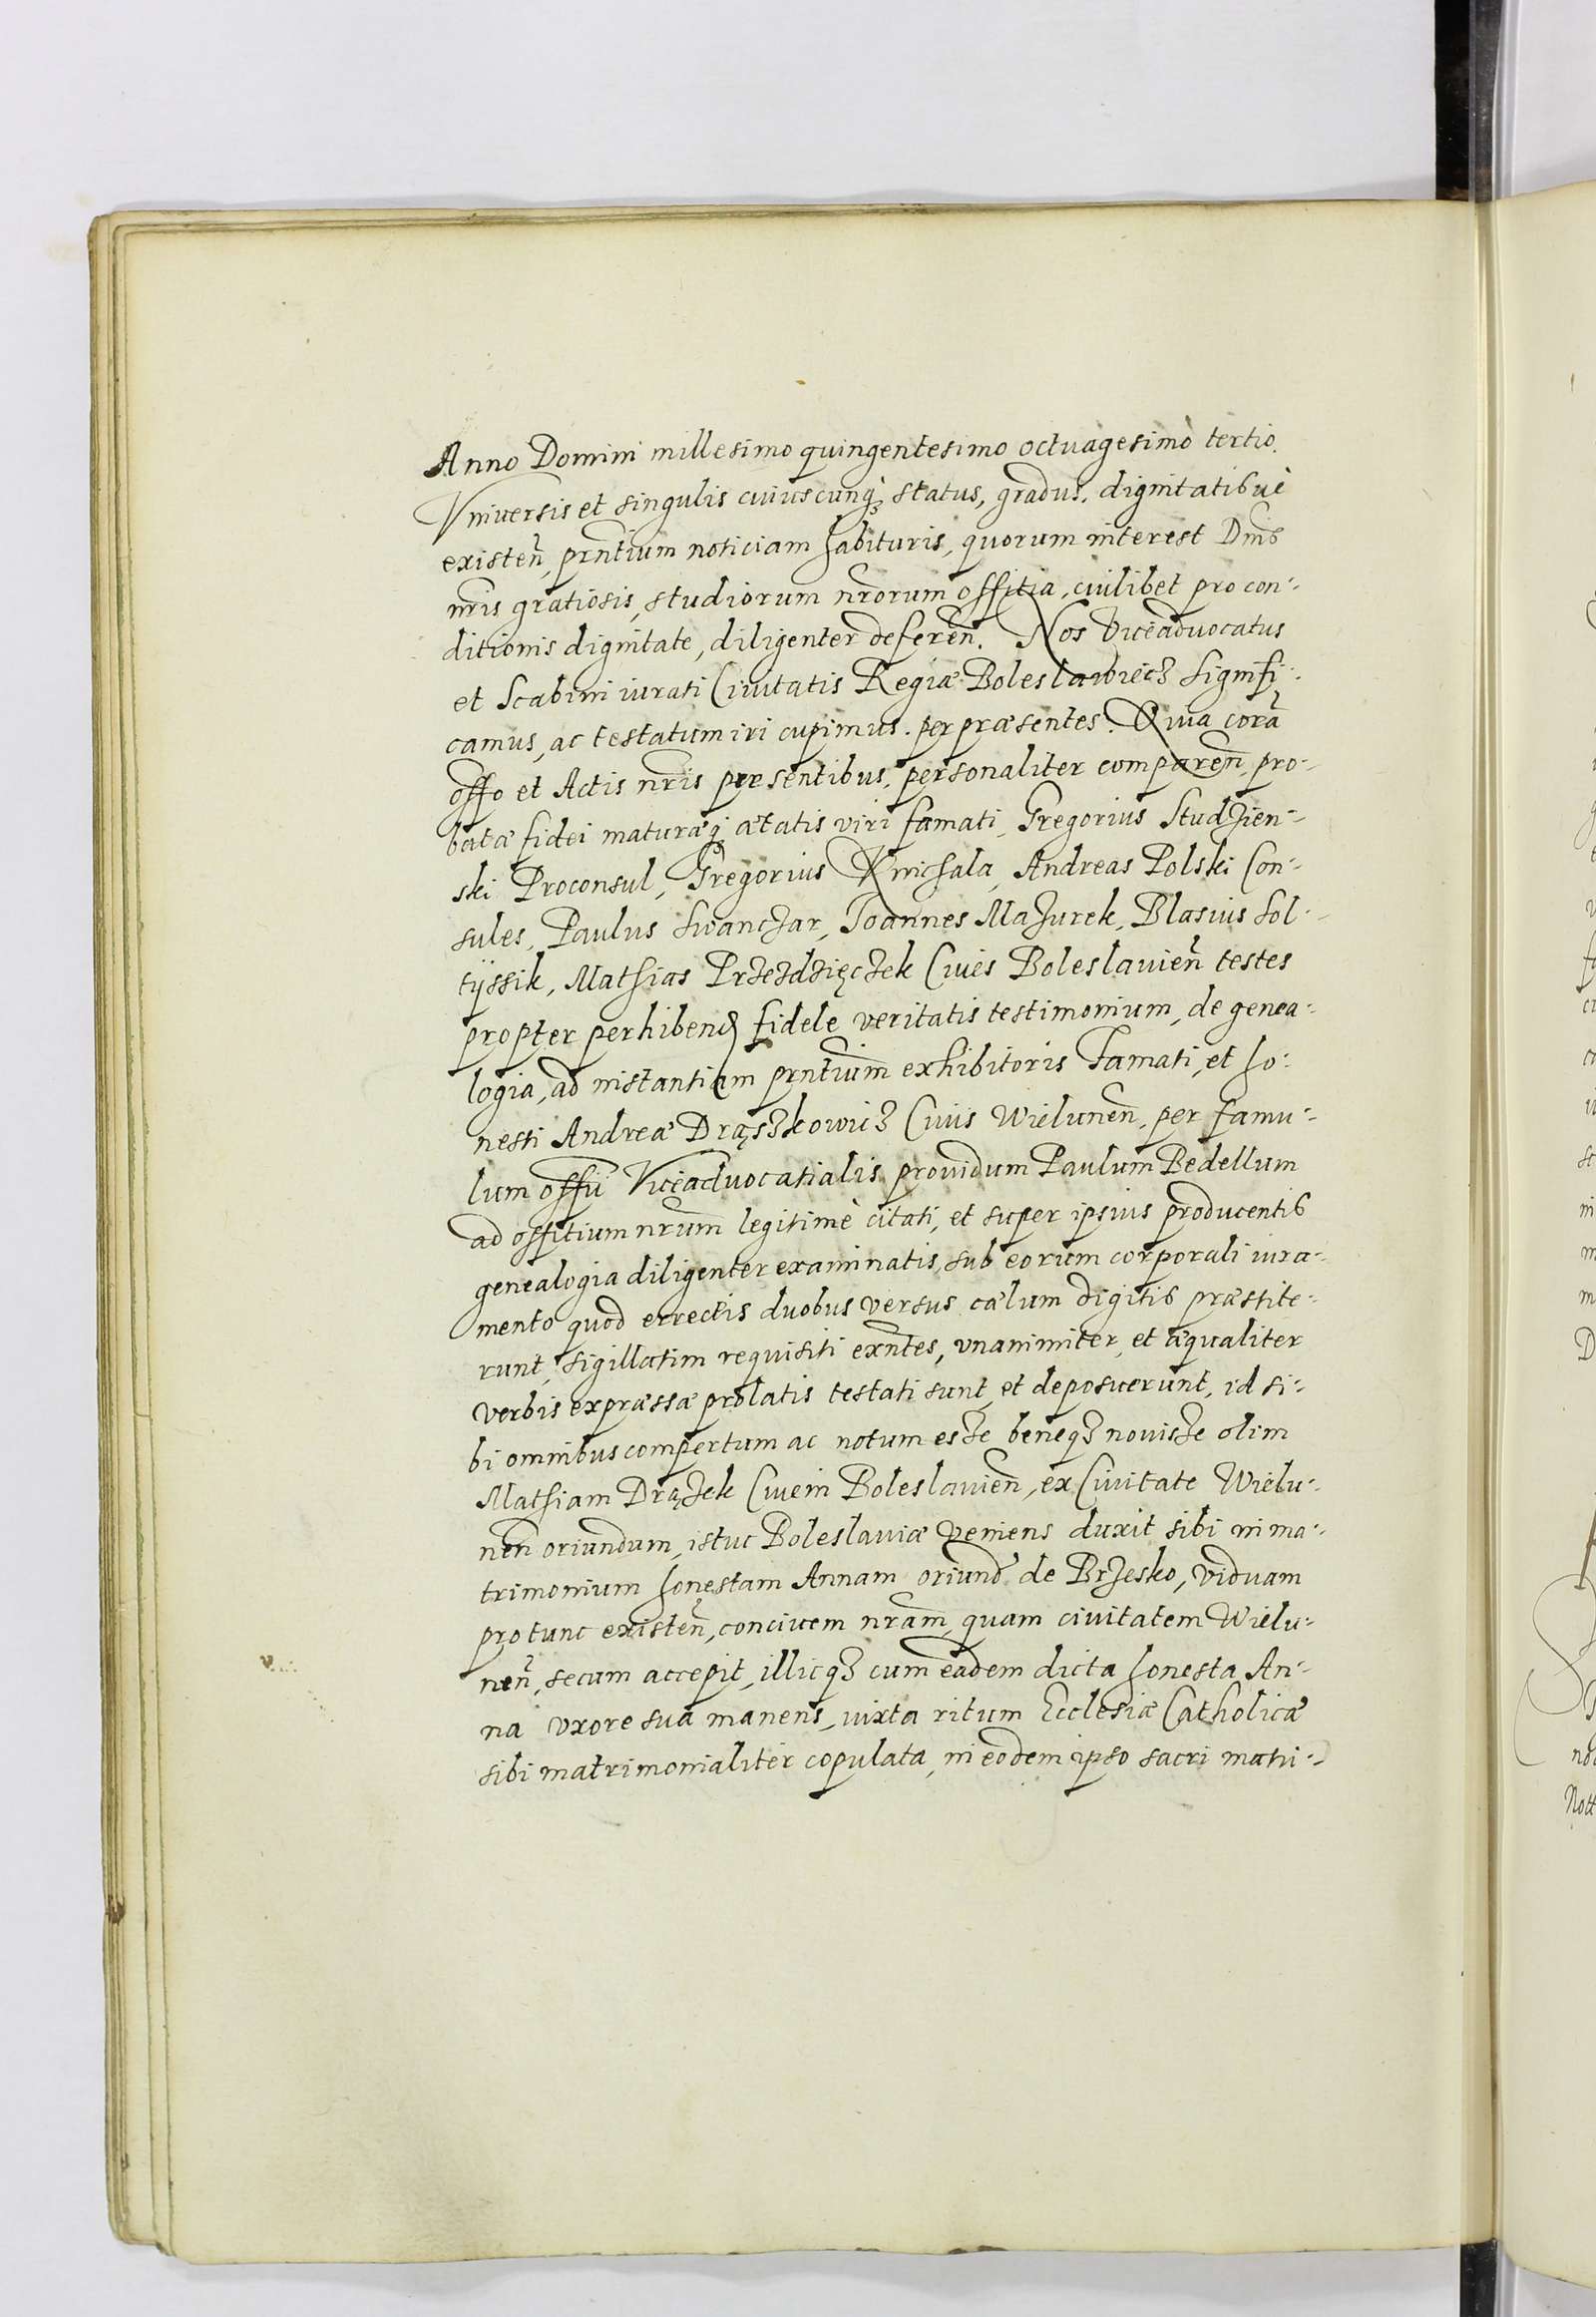 Anno Domini millesimo quingentesimo octuagesimo tertio.
Vniuersis et singulis cuiuscunq; status, gradus, dignitatibuè
existen̄, prn̄tium noticiam habituris, quorum interest Dnis
nris gratiosis, studiorum nrorum offitia, cuilibet pro con:
ditionis dignitate, diligenter deferen̄. Nos Viceaduocatus
et Scabini iurati Ciuitatis Regiæ Boleslawiecz signifi:
camus, ac testatum iri cupimus. per præsentes. Quia corā
offo et Actis nris præsentibus, personaliter comparen̄, pro:
batæ fidei maturæq; ætatis viri famati, Gregorius Studzien:
ski Proconsul, Gregorius Knichala, Andreas Polski Con:
sules, Paulus Swanczar, Joannes Mazurek, Blasius Sol:
tÿssik, Mathias Przezdzięczek Ciues Boleslauien̄ testes
propter perhibend fidele veritatis testimonium, de genea:
logia, ad instantiam prn̄tium exhibitoris Famati, et ho:
nesti Andreæ Drąszkowicz Ciuis Wielunen̄, per famu:
lum offii Viceaduocatialis prouidum Paulum Bedellum
ad offitium nrum legitimè citati, et super ipsius producentis
genealogia diligenter examinatis, sub eorum corporali iura:
mento quod errectis duobus versus cælum digitis præstite:
runt, sigillatim requisiti exn̄tes, vnanimiter, et æqualiter
verbis expræssæ prolatis testati sunt, et deposuerunt, id si:
bi omnibus compertum ac notum esse beneq; nouisse olim
Mathiam Drązek Ciuem Boleslauien̄, ex Ciuitate Wielu:
nen̄ oriundum, istuc Boleslauiæ veniens duxit sibi in ma:
trimonium honestam Annam oriund de Brzesko, viduam
pro tunc existen̄, conciuem nram, quam ciuitatem Wielu:
nen̄, secum accepit, illicq; cum eadem dicta honesta An:
na vxore sua manens, iuxta ritum Ecclesiæ Catholicæ
sibi matrimonialiter copulata, in eodem ipso sacri matri: